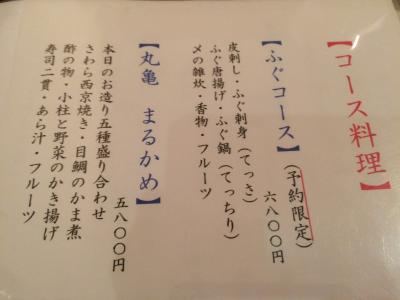 【コース料理】
【ふぐコース】(予約限定)
六八〇〇円
皮刺し・ふぐ刺身(てっさ)
ふぐ唐揚げ・ふぐ鍋(てっちり)
〆の雑炊・香物・フルーツ
【丸亀 まるかめ】
五八〇〇円
本日のお造り五種盛り合わせ
さわら西京焼き・目鯛のかま煮
酢の物・小柱と野菜のかき揚げ
寿司二貫・あら汁・フルーツ